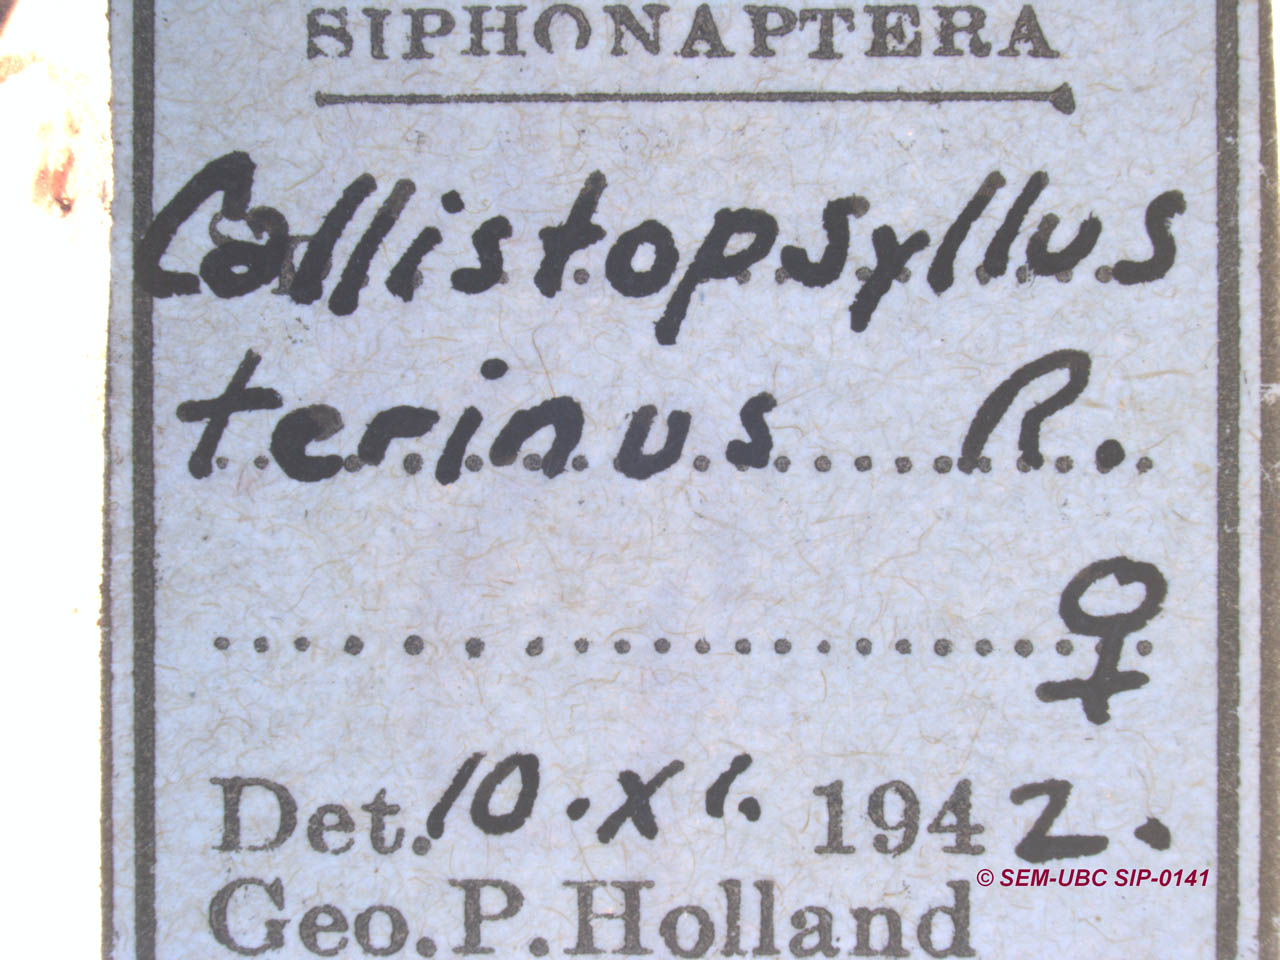 SIPHONAPTERA
Callistopsyllus
terinus R.
♀
Det. 10.XI. 1942.
Geo. P. Holland
© SEM-UBC SIP-0141